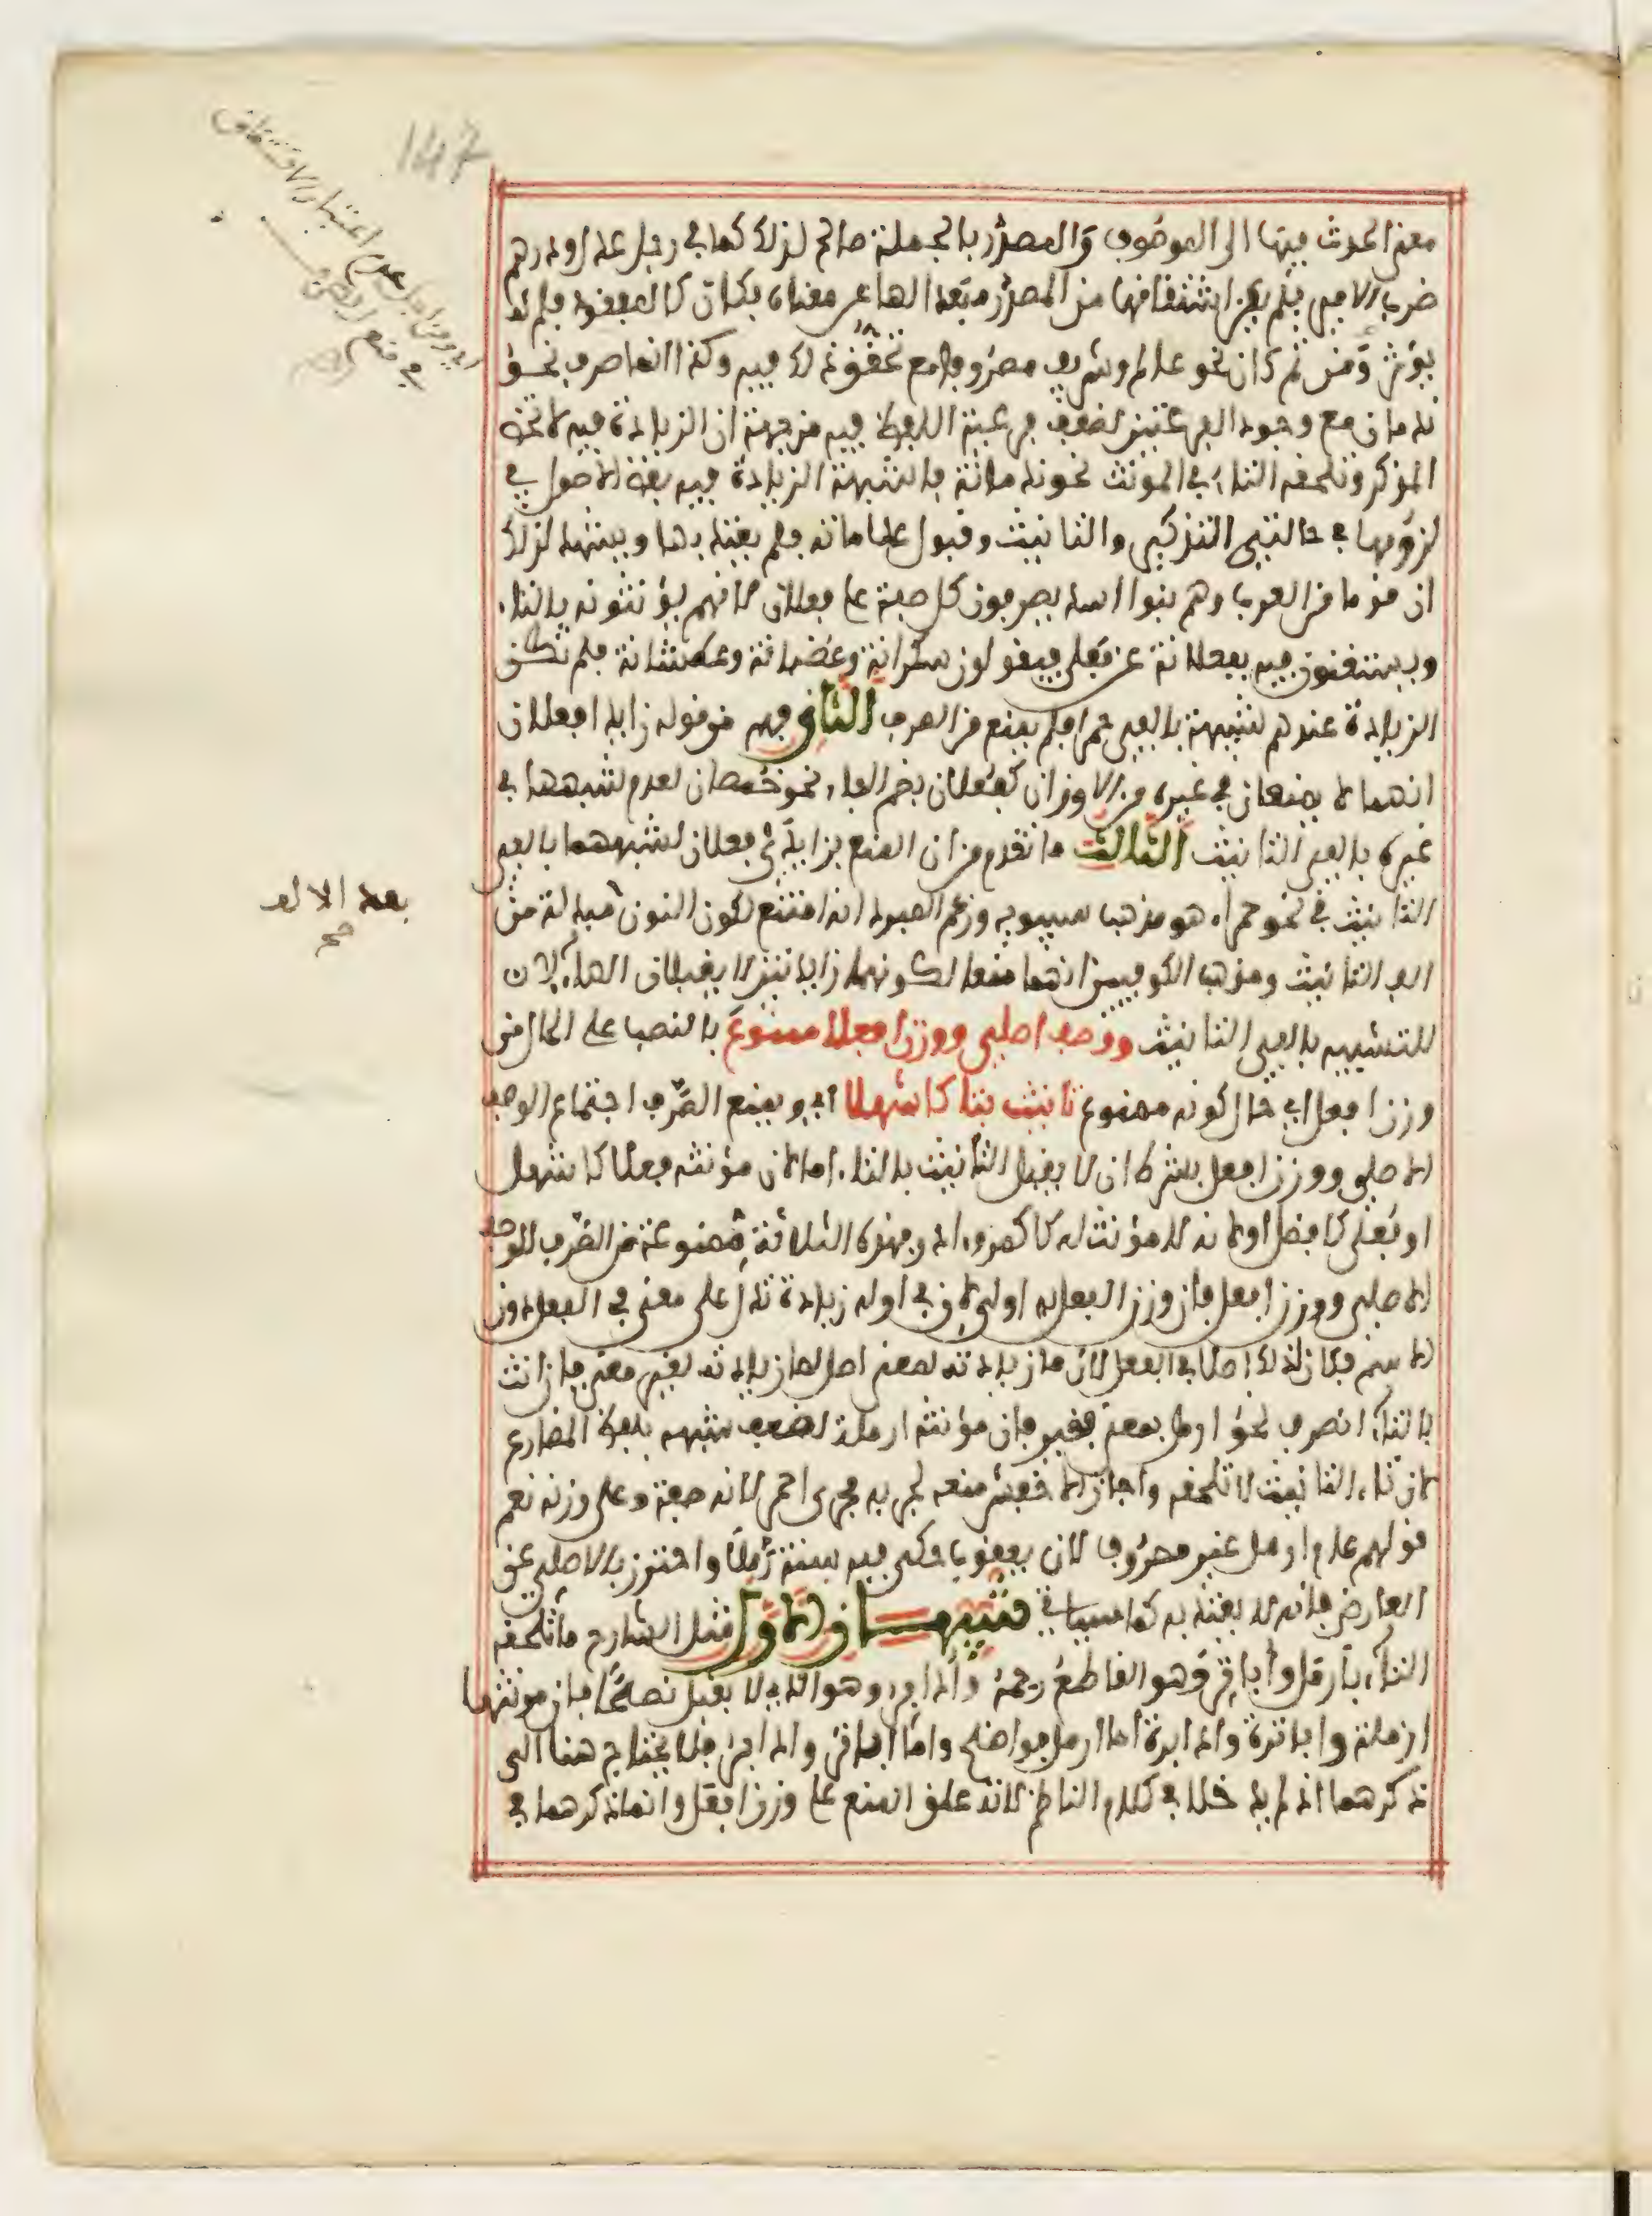 معنى الحدث فيها الى الموصوف والمصدر بالجملة صالح لذلك كما في رجل عدل ودرهم
ضرب الامير فلم يكن اشتقاقها من المصدر مبعدا لها عن معناه فكان كالمفقود فلم
يؤثر ومن ثم كان نحو عالم وشريف مصروفا مع تحقق ذلك فيه وكذا انما صرف نحو
ندمان مع وجود الفرعيتين لضعف فرعية اللفظ فيه من جهة ان الزيادة فيه لا تخص
المذكر وتلحقه التاء في المونث نحو ندمانة فاشبهت الزيادة فيه بعض الاصول في
لزومها في حالتي التذكير والتانيث وقبول علامته فلم يعتد بها ويشهد لذلك
ان قوما من العرب وهم بنوا اسد يصرفون كل صفة على فعلان لانهم يؤنثونه بالتاء
ويستغنون فيه بفعلانة عن فعلى فيقولون سكرانة وغضبانة وعطشانة فلم تكن
الزيادة عندهم شبيهة بالفي حمراء فلم يمنع من الصرف الثاني فهم من قوله زايدا فعلان
انهما لا يمنعان في غيره من الاوزان كفعلان بضم الفاء نحو خمصان لعدم شبههما في
غيره بالفي التانيث الثالث ما تقدم من ان المنع بزايدتي فعلان لشبههما بالفي
التانيث في نحو حمراء هو مذهب سيبويه وزعم المبرد انه امتنع لكون النون مبدلة من
الف التانيث ومذهب الكوفيين انهما منعا لكونهما زايدتين لا يقبلان الهاء لان
للتشبيه بالفي التانيث ووصف اصلي ووزن افعلا ممنوع بالنصب على الحال من
وزن افعل اي حال كونه ممنوع تانيث بتا كاشهلا اي ويمنع الصرف اجتماع الوصف
الاصلي ووزن افعل بشرط ان لا يقبل التانيث بالتاء اما لان مؤنثه فعلا كاشهل
او فعلى كافضل او لانه لا مؤنث له كاكمر وادر فهذه الثلاثة ممنوعة من الصرف للوصف
الاصلي ووزن افعل فان وزن الفعل به اولى لان في اوله زيادة تدل على معنى في الفعل دون
الاسم فكان ذلك اصلا في الفعل لان ما زيادته لمعنى اصل لما زيادته لغير معنى فان انث
بالتاء انصرف نحو ارمل بمعنى فقير فان مؤنثه ارملة لضعف شبهه بلفظ المضارع
لان تاء التانيث لا تلحقه واجاز الاخفش منعه لجريه مجرى احمر لانه صفة وعلى وزنه نعم
قولهم عام ارمل غير مصروف لان يعقوب حكى فيه سنة رملا واحترز بالاصلي عن
العارض فانه لا يعتد به كما سياتي تنبيهان الاول مثل الشارح ما تلحقه
التاء بارمل واباتر وهو القاطع رحمه وادابر وهو الذي لا يقبل نصحا فان مونثها
ارملة واباترة وادابرة اما ارمل فواضح واما اباتر وادابر فلا يحتاج هنا الى
ذكرهما اذ لم يدخلا في كلام الناظم لانه علق المنع على وزن افعل وانما ذكرهما في
147
اي ومن اجل عدم اعتبار الاشتقاق
في منع الصرف
بعد الالف
صح